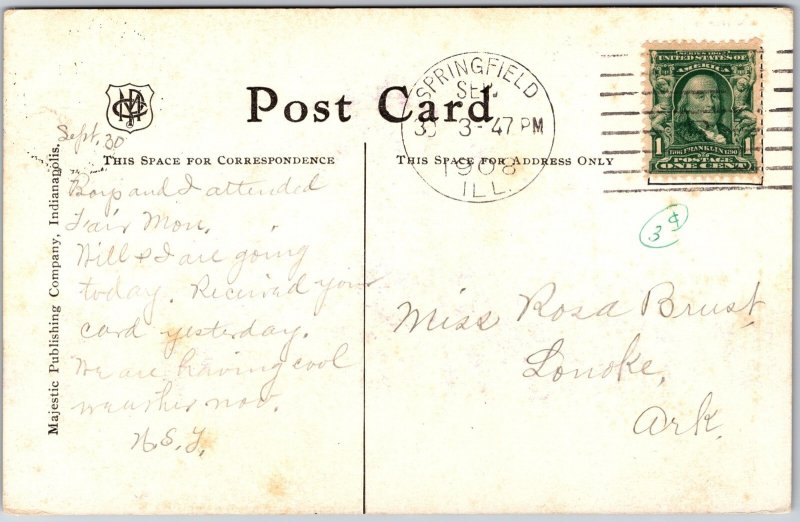 Post Card
THIS SPACE FOR CORRESPONDENCE
THIS SPACE FOR ADDRESS ONLY
Majestic Publishing Company, Indianapolis.
Sept. 30
Boys and I attended
Fair Mon.
Will & I are going
today. Received your
card yesterday.
We are having cool
weather now.
SPRINGFIELD
SEP.
30 3-47 PM
1908
ILL.
SERIES 1902
UNITED STATES OF
AMERICA
1706 FRANKLIN 1790
1 POSTAGE 1
ONE CENT
3
Miss Rosa Brust
Lonoke,
Ark.